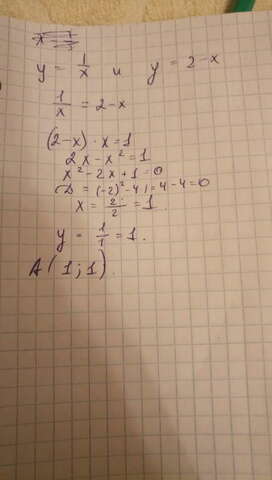 y = 1/x и y = 2-x
1/x = 2-x
(2-x) · x = 1
2x - x² = 1
x² - 2x + 1 = 0
D = (-2)² - 4 = 4 - 4 = 0
x = 2/2 = 1.
y = 1/1 = 1.
A(1;1).